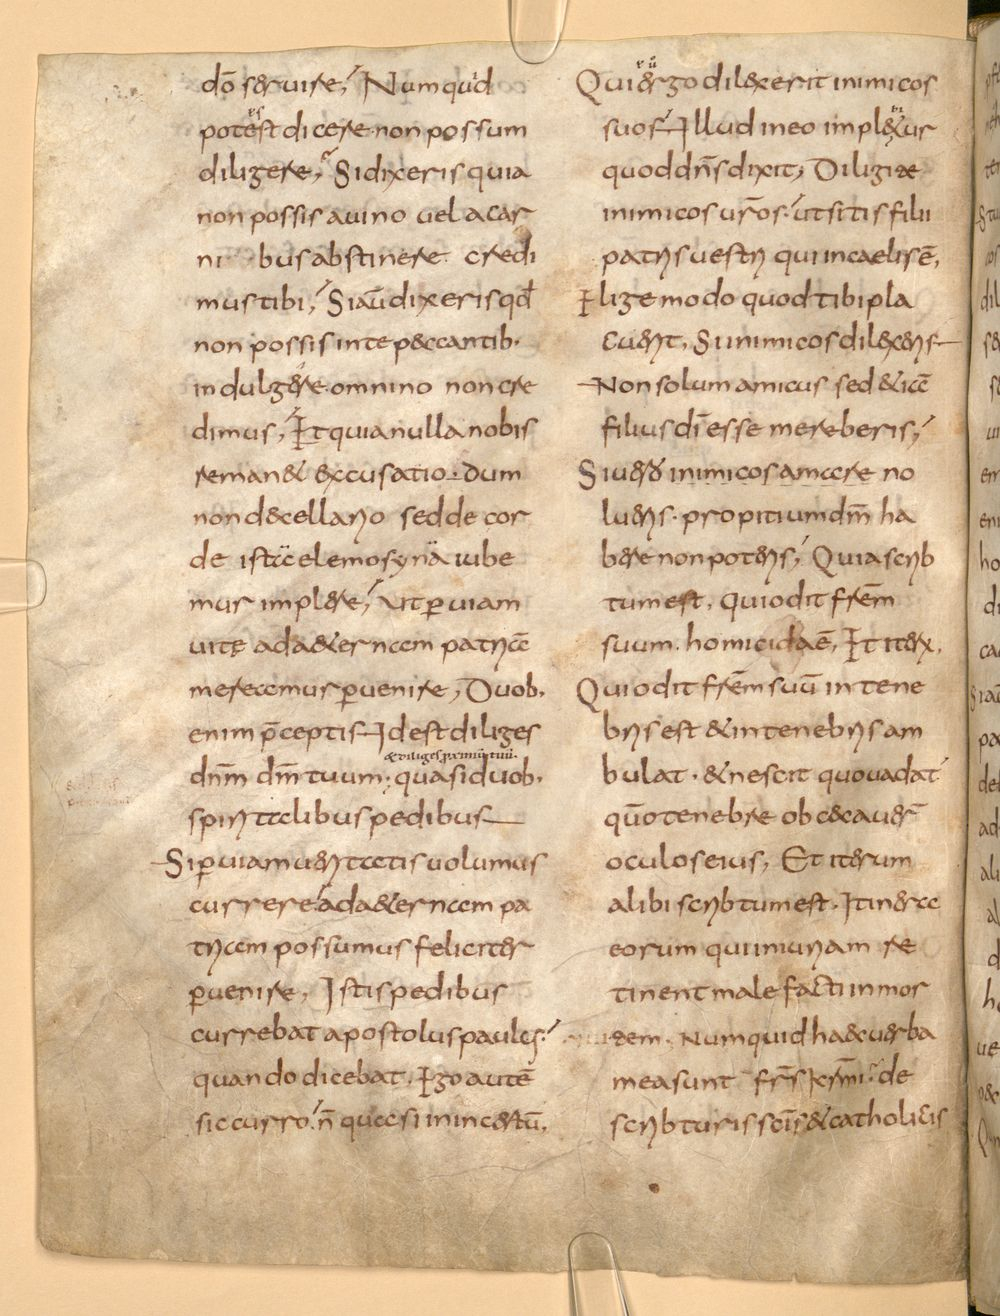 dō seruire, Numquid
potest dicere non possum
diligere, Si dixeris quia
non possis a uino uel a car
ni bus abstinere credi
mus tibi, Si aūdixeris qđ
non possis in te peccantib·
indulgere· omnino non cre
dimus, Et quia nulla nobis
remanet excusatio· dum
non de cellario sed de cor
de istā elemosynā iube
mur implere, Ut ꝑ uiam
uitę ad aeternam patriā
mereamur ꝑuenire, Duob·
enim p̄ceptis Id est diliges
dn̄m dm̄ tuum; quasi duob·
& diliges proximū tuū·
spiritalibus pedibus
Si ꝑ uiam ueritatis uolumus
currere ad aeternam pa
triam possumus feliciter
ꝑuenire, Istis pedibus
currebat apostolus paulus·
quando dicebat, Ego autē
sic curro· n̄ quasi in incertū,
Qui ergo dilexerit inimicos
suos Illud in eo impletur
quod dn̄s dixit, Diligite
inimicos ur̄os· ut sitis filii
patris uestri qui in caelis ē,
Elige modo quod tibi pla
cuerit, Si inimicos dilexeris
Non solum amicus sed etiā
filius dī esse mereberis,
Si uero inimicos amare no
lueris· propitium dm̄ ha
bere non poteris, Quia scrib
tum est, qui odit frēm
suum· homicida ē, Et iterū,
Qui odit frēm suū in tene
bris est & in tenebris am
bulat· & nescit quo uadat
qūo tenebre obcecauer̄
oculos eius, Et iterum
alibi scribtum est· Itinera
eorum qui iniuriam re
tinent male facti in mor
tem· Numquid haec uerba
mea sunt fr̄s kr̄mi· de
scribturis scīs & catholicis